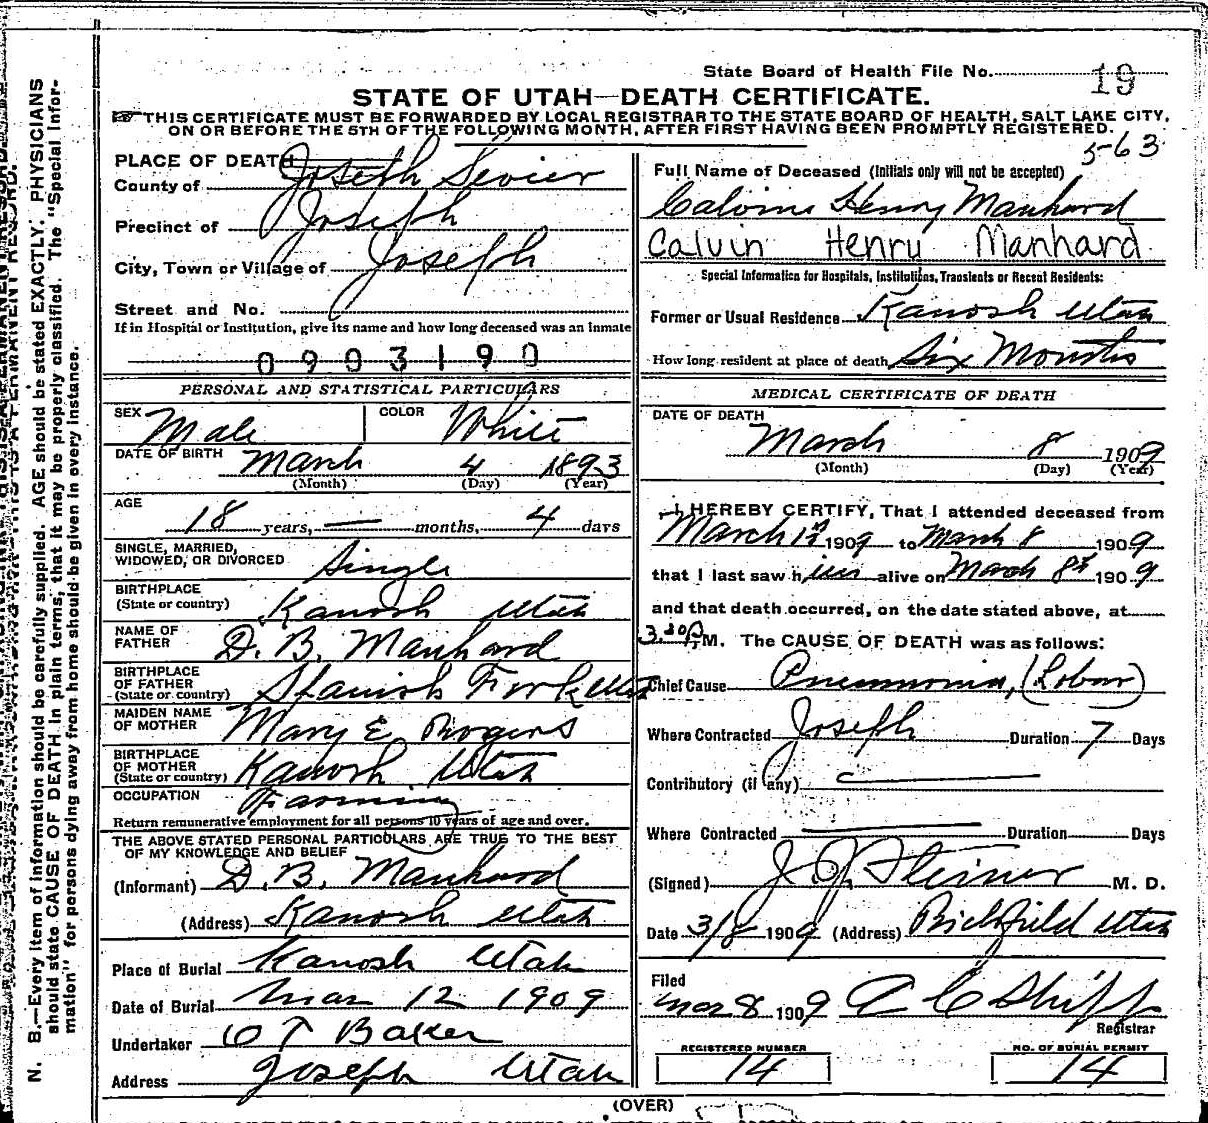 State Board of Health File No. 19
STATE OF UTAH—DEATH CERTIFICATE.
☞THIS CERTIFICATE MUST BE FORWARDED BY LOCAL REGISTRAR TO THE STATE BOARD OF HEALTH, SALT LAKE CITY,
ON OR BEFORE THE 5TH OF THE FOLLOWING MONTH, AFTER FIRST HAVING BEEN PROMPTLY REGISTERED.
5-63
PLACE OF DEATH
County of Joseph Sevier
Precinct of Joseph
City, Town or Village of Joseph
Street and No.
If in Hospital or Institution, give its name and how long deceased was an inmate
0903190
PERSONAL AND STATISTICAL PARTICULARS
SEX Male COLOR White
DATE OF BIRTH March 4 1893
(Month) (Day) (Year)
AGE
18 years, — months, 4 days
SINGLE, MARRIED,
WIDOWED, OR DIVORCED Single
BIRTHPLACE
(State or country) Kanosh Utah
NAME OF
FATHER D. B. Manhard
BIRTHPLACE
OF FATHER
(State or country) Spanish Fork Utah
MAIDEN NAME
OF MOTHER Mary E Rogers
BIRTHPLACE
OF MOTHER
(State or country) Kanosh Utah
OCCUPATION Farming
Return remunerative employment for all persons 10 years of age and over.
THE ABOVE STATED PERSONAL PARTICULARS ARE TRUE TO THE BEST
OF MY KNOWLEDGE AND BELIEF
(Informant) D. B. Manhard
(Address) Kanosh Utah
Place of Burial Kanosh Utah
Date of Burial Mar 12 1909
Undertaker O T Baker
Address Joseph Utah
Full Name of Deceased (Initials only will not be accepted)
Calvine Henry Manhard
Calvin Henry Manhard
Special Information for Hospitals, Institutions, Transients or Recent Residents:
Former or Usual Residence Kanosh Utah
How long resident at place of death Six Months
MEDICAL CERTIFICATE OF DEATH
DATE OF DEATH
March 8 1909
(Month) (Day) (Year)
I HEREBY CERTIFY, That I attended deceased from
March 1st 1909 to March 8 1909
that I last saw him alive on March 8th 1909
and that death occurred, on the date stated above, at
3.30 P M. The CAUSE OF DEATH was as follows:
Chief Cause Pneumonia, (Lobar)
Where Contracted Joseph Duration 7 Days
Contributory (if any)
Where Contracted Duration Days
(Signed) J. J. Steiner M. D.
Date 3/8 1909 (Address) Richfield Utah
Filed
Mar 8 1909 A C Shipp
Registrar
REGISTERED NUMBER
14
NO. OF BURIAL PERMIT
14
(OVER)
N. B.—Every item of information should be carefully supplied. AGE should be stated EXACTLY. PHYSICIANS
should state CAUSE OF DEATH in plain terms, that it may be properly classified. The "Special Infor-
mation" for persons dying away from home should be given in every instance.